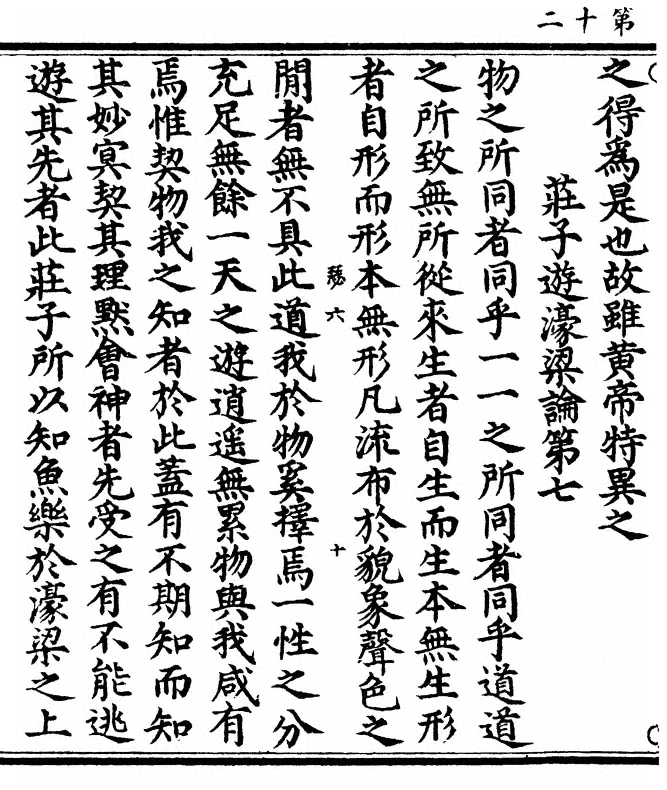 第十二
之得為是也故雖黃帝特異之
莊子遊濠梁論第七
物之所同者同乎一一之所同者同乎道道
之所致無所從來生者自生而生本無生形
者自形而形本無形凡流布於貌象聲色之
六
十
間者無不具此道我於物奚擇焉一性之分
充足無餘一天之遊逍遥無累物與我咸有
焉惟契物我之知者於此蓋有不期知而知
其妙冥契其理默會神者先受之有不能逃
遊其先者此莊子所以知魚樂於濠梁之上